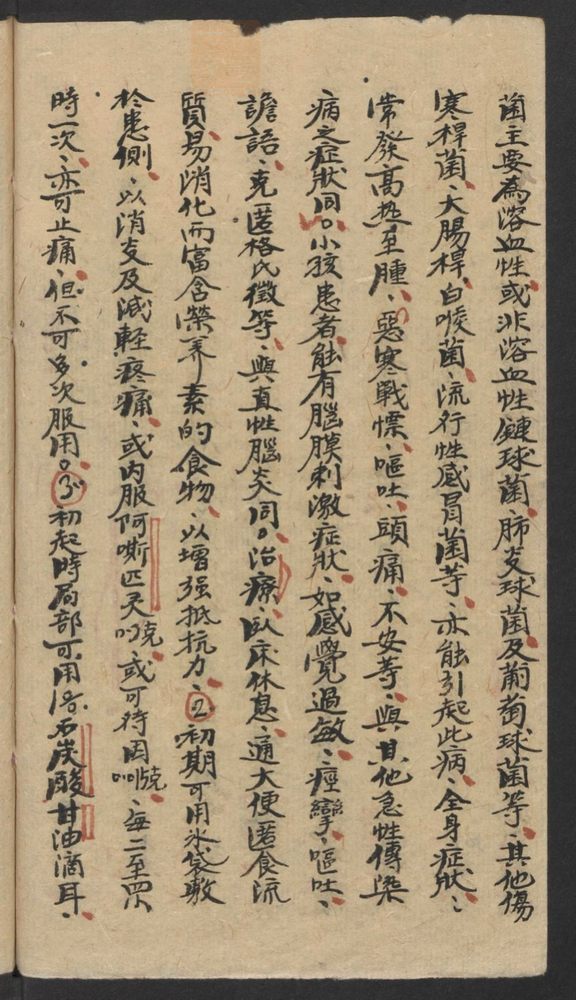 菌主要為溶血性或非溶血性鏈球菌、肺炎球菌及葡萄球菌等、其他傷
寒桿菌、大腸桿、白喉菌、流行性感冒菌等、亦能引起此病、全身症狀、
常發高热至腫、惡寒戰慄、嘔吐、頭痛、不安等、與其他急性傳染
病之症狀同。小孩患者能有腦膜刺激症狀、如感覺過敏、痙攣、嘔吐、
譫語、克匿格氏徵等、與真性腦炎同。治療、臥床休息、通大便匿食流
質、易消化而富含榮养素的食物、以增强抵抗力、②初期可用氷袋敷
於患側、以消炎及減輕疼痛、或内服阿嘶匹灵 克、或可待因 克、每二至四小
時一次、亦可止痛、但不可多次服用。③初起時局部可用 石炭酸甘油滴耳、